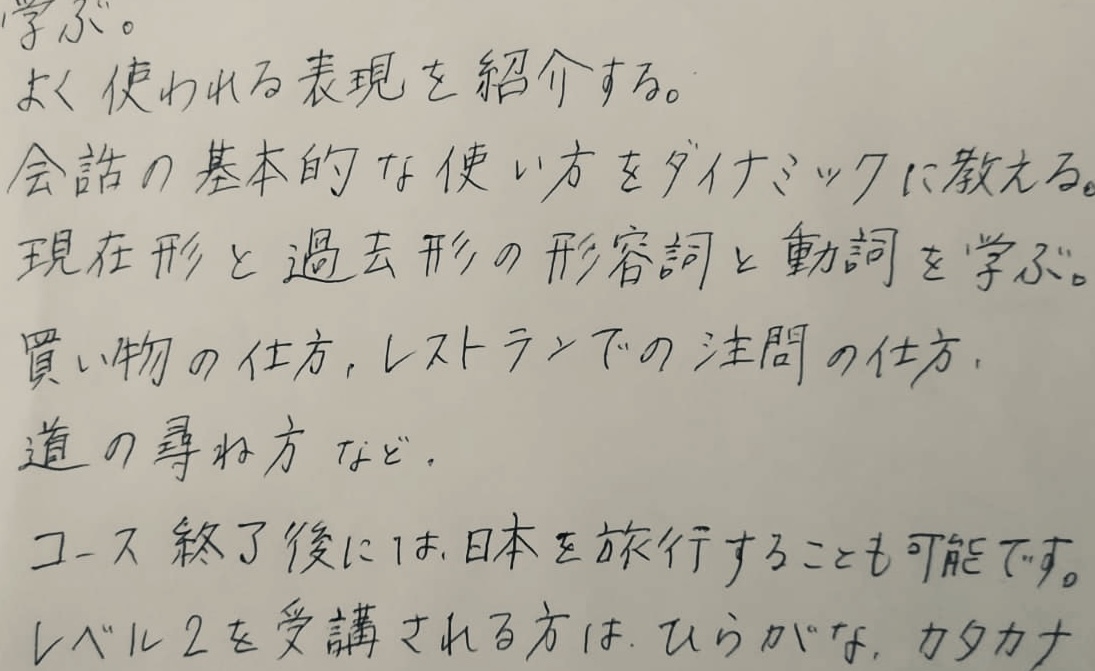 学ぶ。
よく使われる表現を紹介する。
会話の基本的な使い方をダイナミックに教える。
現在形と過去形の形容詞と動詞を学ぶ。
買い物の仕方,レストランでの注問の仕方,
道の尋ね方など.
コース終了後には,日本を旅行することも可能です。
レベル2を受講される方は,ひらがな,カタカナ